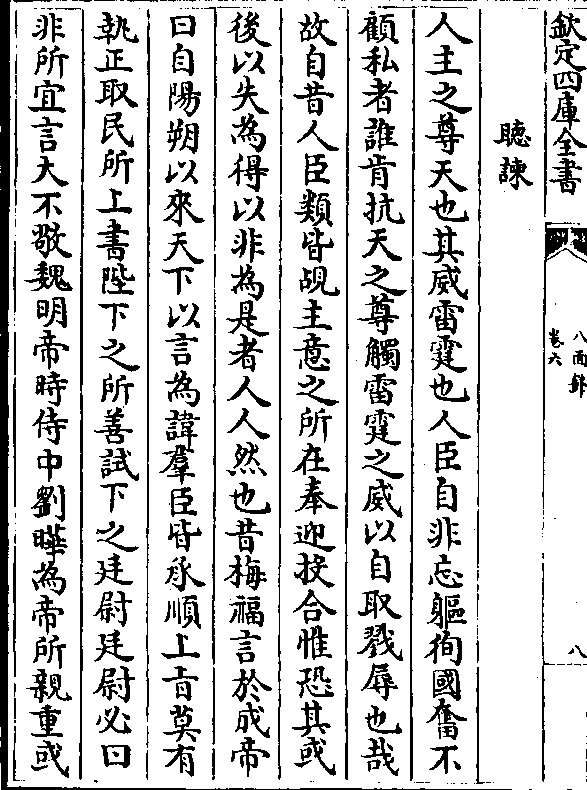 欽定四庫全書
八面鋒
卷六
八
聽諫
人主之尊天也其威雷霆也人臣自非忘軀徇國奮不
顧私者誰肯抗天之尊觸雷霆之威以自取戮辱也哉
故自昔人臣類皆覘主意之所在奉迎投合惟恐其或
後以失為得以非為是者人人然也昔梅福言於成帝
曰自陽朔以來天下以言為諱羣臣皆承順上㫖莫有
執正取民所上書陛下之所善試下之廷尉廷尉必曰
非所宜言大不敬魏明帝時侍中劉曄為帝所親重或